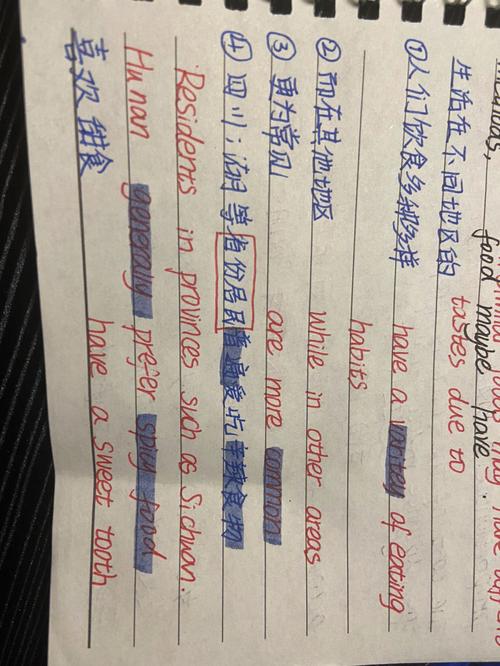 food maybe have
生活在不同地区的 tastes due to
①人们饮食多种多样 have a varitey of eating
habies
②而在其他地区 while in other areas
③更为常见 are more common
④四川;湖等省份居民普喜爱吃辛辣食物
Residents in provinces such as Sichuan.
Hunan generally prefer spicy food
喜欢甜食 have a sweet tooth